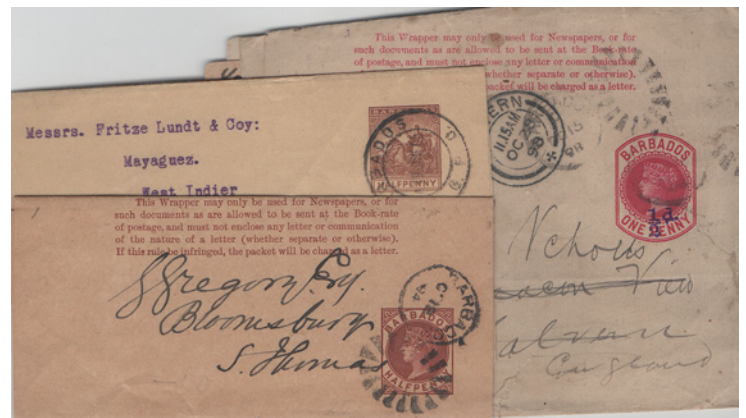 This Wrapper may only be used for Newspapers, or for
such documents as are allowed to be sent at the Book-rate
of postage, and must not enclose any letter or communication
(whether separate or otherwise).
packet will be charged as a letter.
BARBADOS
ONE PENNY
½d.
11.15AM
OC
98
Nchols
View
England
Messrs. Fritze Lundt & Coy:
Mayaguez.
West Indier
BARBADOS
HALFPENNY
This Wrapper may only be used for Newspapers, or for
such documents as are allowed to be sent at the Book-rate
of postage, and must not enclose any letter or communication
of the nature of a letter (whether separate or otherwise).
If this rule be infringed, the packet will be charged as a letter.
J Gregory Esq.
Bloomsbury
S. Thomas
BARBADOS
BARBADOS
HALFPENNY